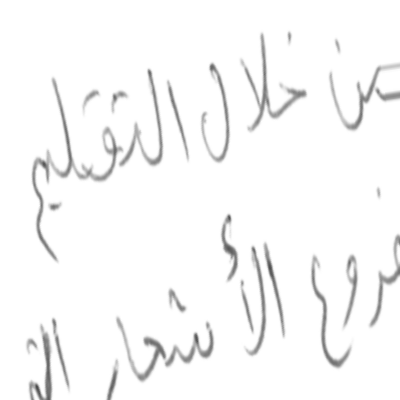 من خلال التقليم
فروع الأشجار